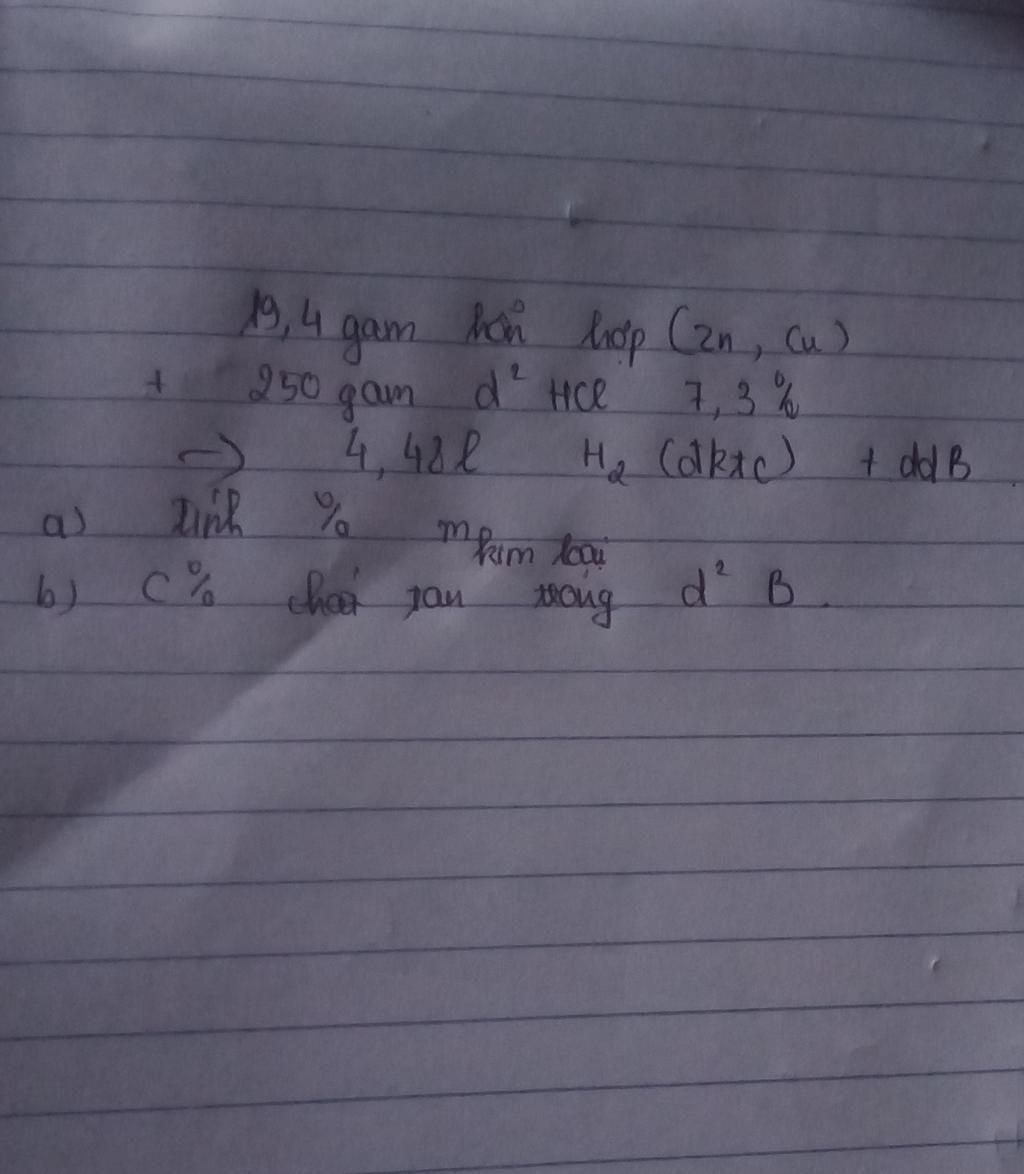 19,4 gam hỗn hợp (Zn, Cu)
+ 250 gam d² HCl 7,3%
→ 4,48 l H₂ (đktc) + ddB
a) Tính % m kim loại
b) C% chất tan trong d² B.